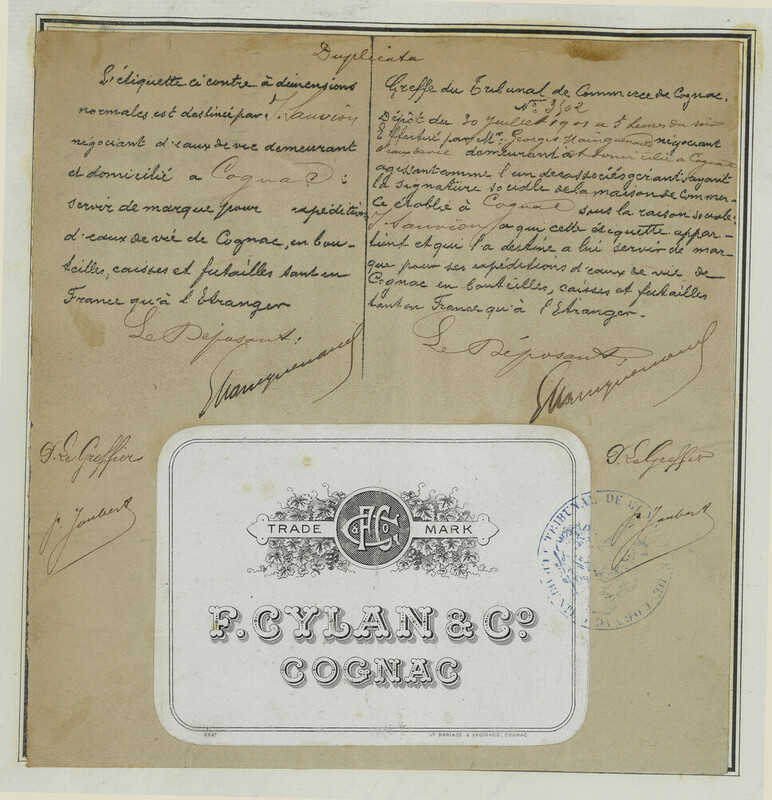 Duplicata
L'étiquette ci contre à dimensions
normales est destinée par J. Sauvion
négociant d'eaux de vie demeurant
et domicilié à Cognac :
servir de marque pour expéditions
d'eaux de vie de Cognac, en bou-
teilles, caisses et futailles tant en
France qu'à l'Etranger
Le Déposant:
D. Le Greffier
Joubert
Greffe du Tribunal de Commerce de Cognac.
No. 3502
Dépôt du 30 Juillet 1901 à 5 heures du soir
Effectué par Mr. Georges négociant
demeurant et domicilié à Cognac
agissant comme l'un des associés gérant, ayant
la signature sociale de la maison de Commer-
ce établie à Cognac sous la raison sociale:
J. Sauvion à qui cette étiquette appar-
tient et qui l'a destiné à lui servir de mar-
que pour ses expéditions d'eaux de vie de
Cognac en bouteilles, caisses et futailles
tant en France qu'à l'Etranger.
Le Déposant,
D. Le Greffier
Joubert
TRIBUNAL DE
DE COGNAC
TRADE MARK
F. CYLAN & Co
COGNAC
Vve MARIAGE & ANGIBAUD, COGNAC